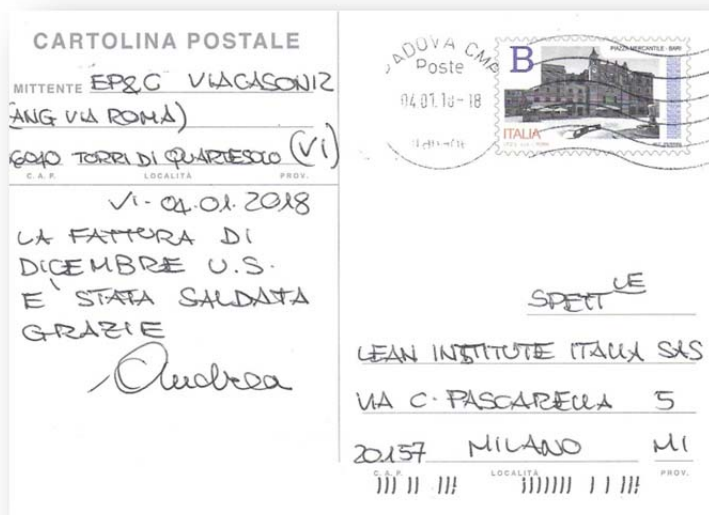 CARTOLINA POSTALE
MITTENTE EP&C VIA CASONI 2
(ANG VIA ROMA)
36040 TORRI DI QUARTESOLO (VI)
C. A. P. LOCALITÀ PROV.
VI - 04.01.2018
LA FATTURA DI
DICEMBRE U.S.
E' STATA SALDATA
GRAZIE
Andrea
PADOVA CMP
Poste
04.01.18-18
B
PIAZZA MERCANTILE - BARI
ITALIA
SPETT LE
LEAN INSTITUTE ITALIA SAS
VIA C. PASCARELLA 5
20157 MILANO MI
C. A. P. LOCALITÀ PROV.